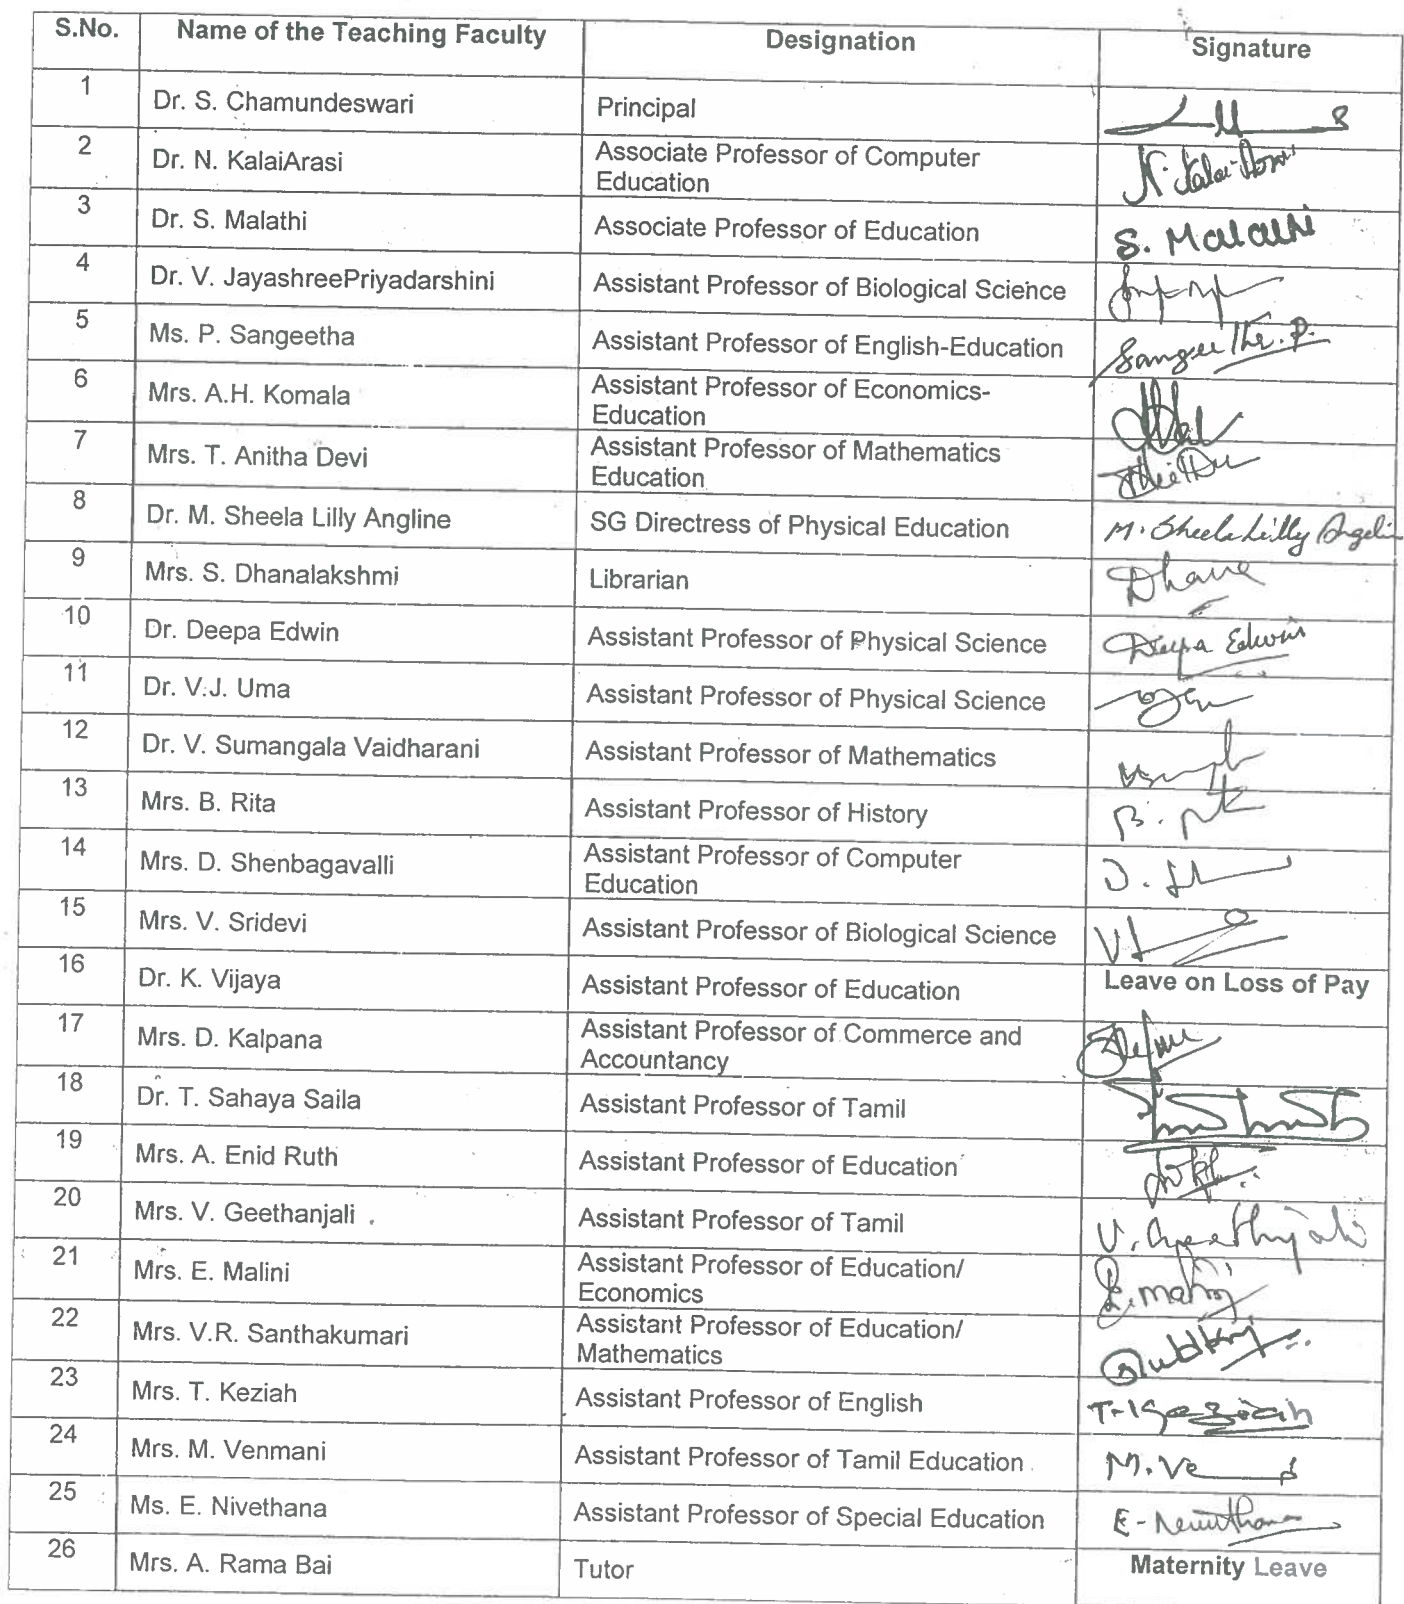 S.No. Name of the Teaching Faculty Designation Signature
1 Dr. S. Chamundeswari Principal
2 Dr. N. KalaiArasi Associate Professor of Computer
Education
3 Dr. S. Malathi Associate Professor of Education S. Malathi
4 Dr. V. JayashreePriyadarshini Assistant Professor of Biological Science
5 Ms. P. Sangeetha Assistant Professor of English-Education Sangeetha. P.
6 Mrs. A.H. Komala Assistant Professor of Economics-
Education
7 Mrs. T. Anitha Devi Assistant Professor of Mathematics
Education
8 Dr. M. Sheela Lilly Angline SG Directress of Physical Education M. Sheela Lilly Angelin
9 Mrs. S. Dhanalakshmi Librarian Dhana
10 Dr. Deepa Edwin Assistant Professor of Physical Science Deepa Edwin
11 Dr. V.J. Uma Assistant Professor of Physical Science
12 Dr. V. Sumangala Vaidharani Assistant Professor of Mathematics
13 Mrs. B. Rita Assistant Professor of History
14 Mrs. D. Shenbagavalli Assistant Professor of Computer
Education
15 Mrs. V. Sridevi Assistant Professor of Biological Science
16 Dr. K. Vijaya Assistant Professor of Education Leave on Loss of Pay
17 Mrs. D. Kalpana Assistant Professor of Commerce and
Accountancy
18 Dr. T. Sahaya Saila Assistant Professor of Tamil
19 Mrs. A. Enid Ruth Assistant Professor of Education
20 Mrs. V. Geethanjali Assistant Professor of Tamil V. Geethanjali
21 Mrs. E. Malini Assistant Professor of Education/
Economics E. Malini
22 Mrs. V.R. Santhakumari Assistant Professor of Education/
Mathematics
23 Mrs. T. Keziah Assistant Professor of English T. Keziah
24 Mrs. M. Venmani Assistant Professor of Tamil Education
25 Ms. E. Nivethana Assistant Professor of Special Education
26 Mrs. A. Rama Bai Tutor Maternity Leave